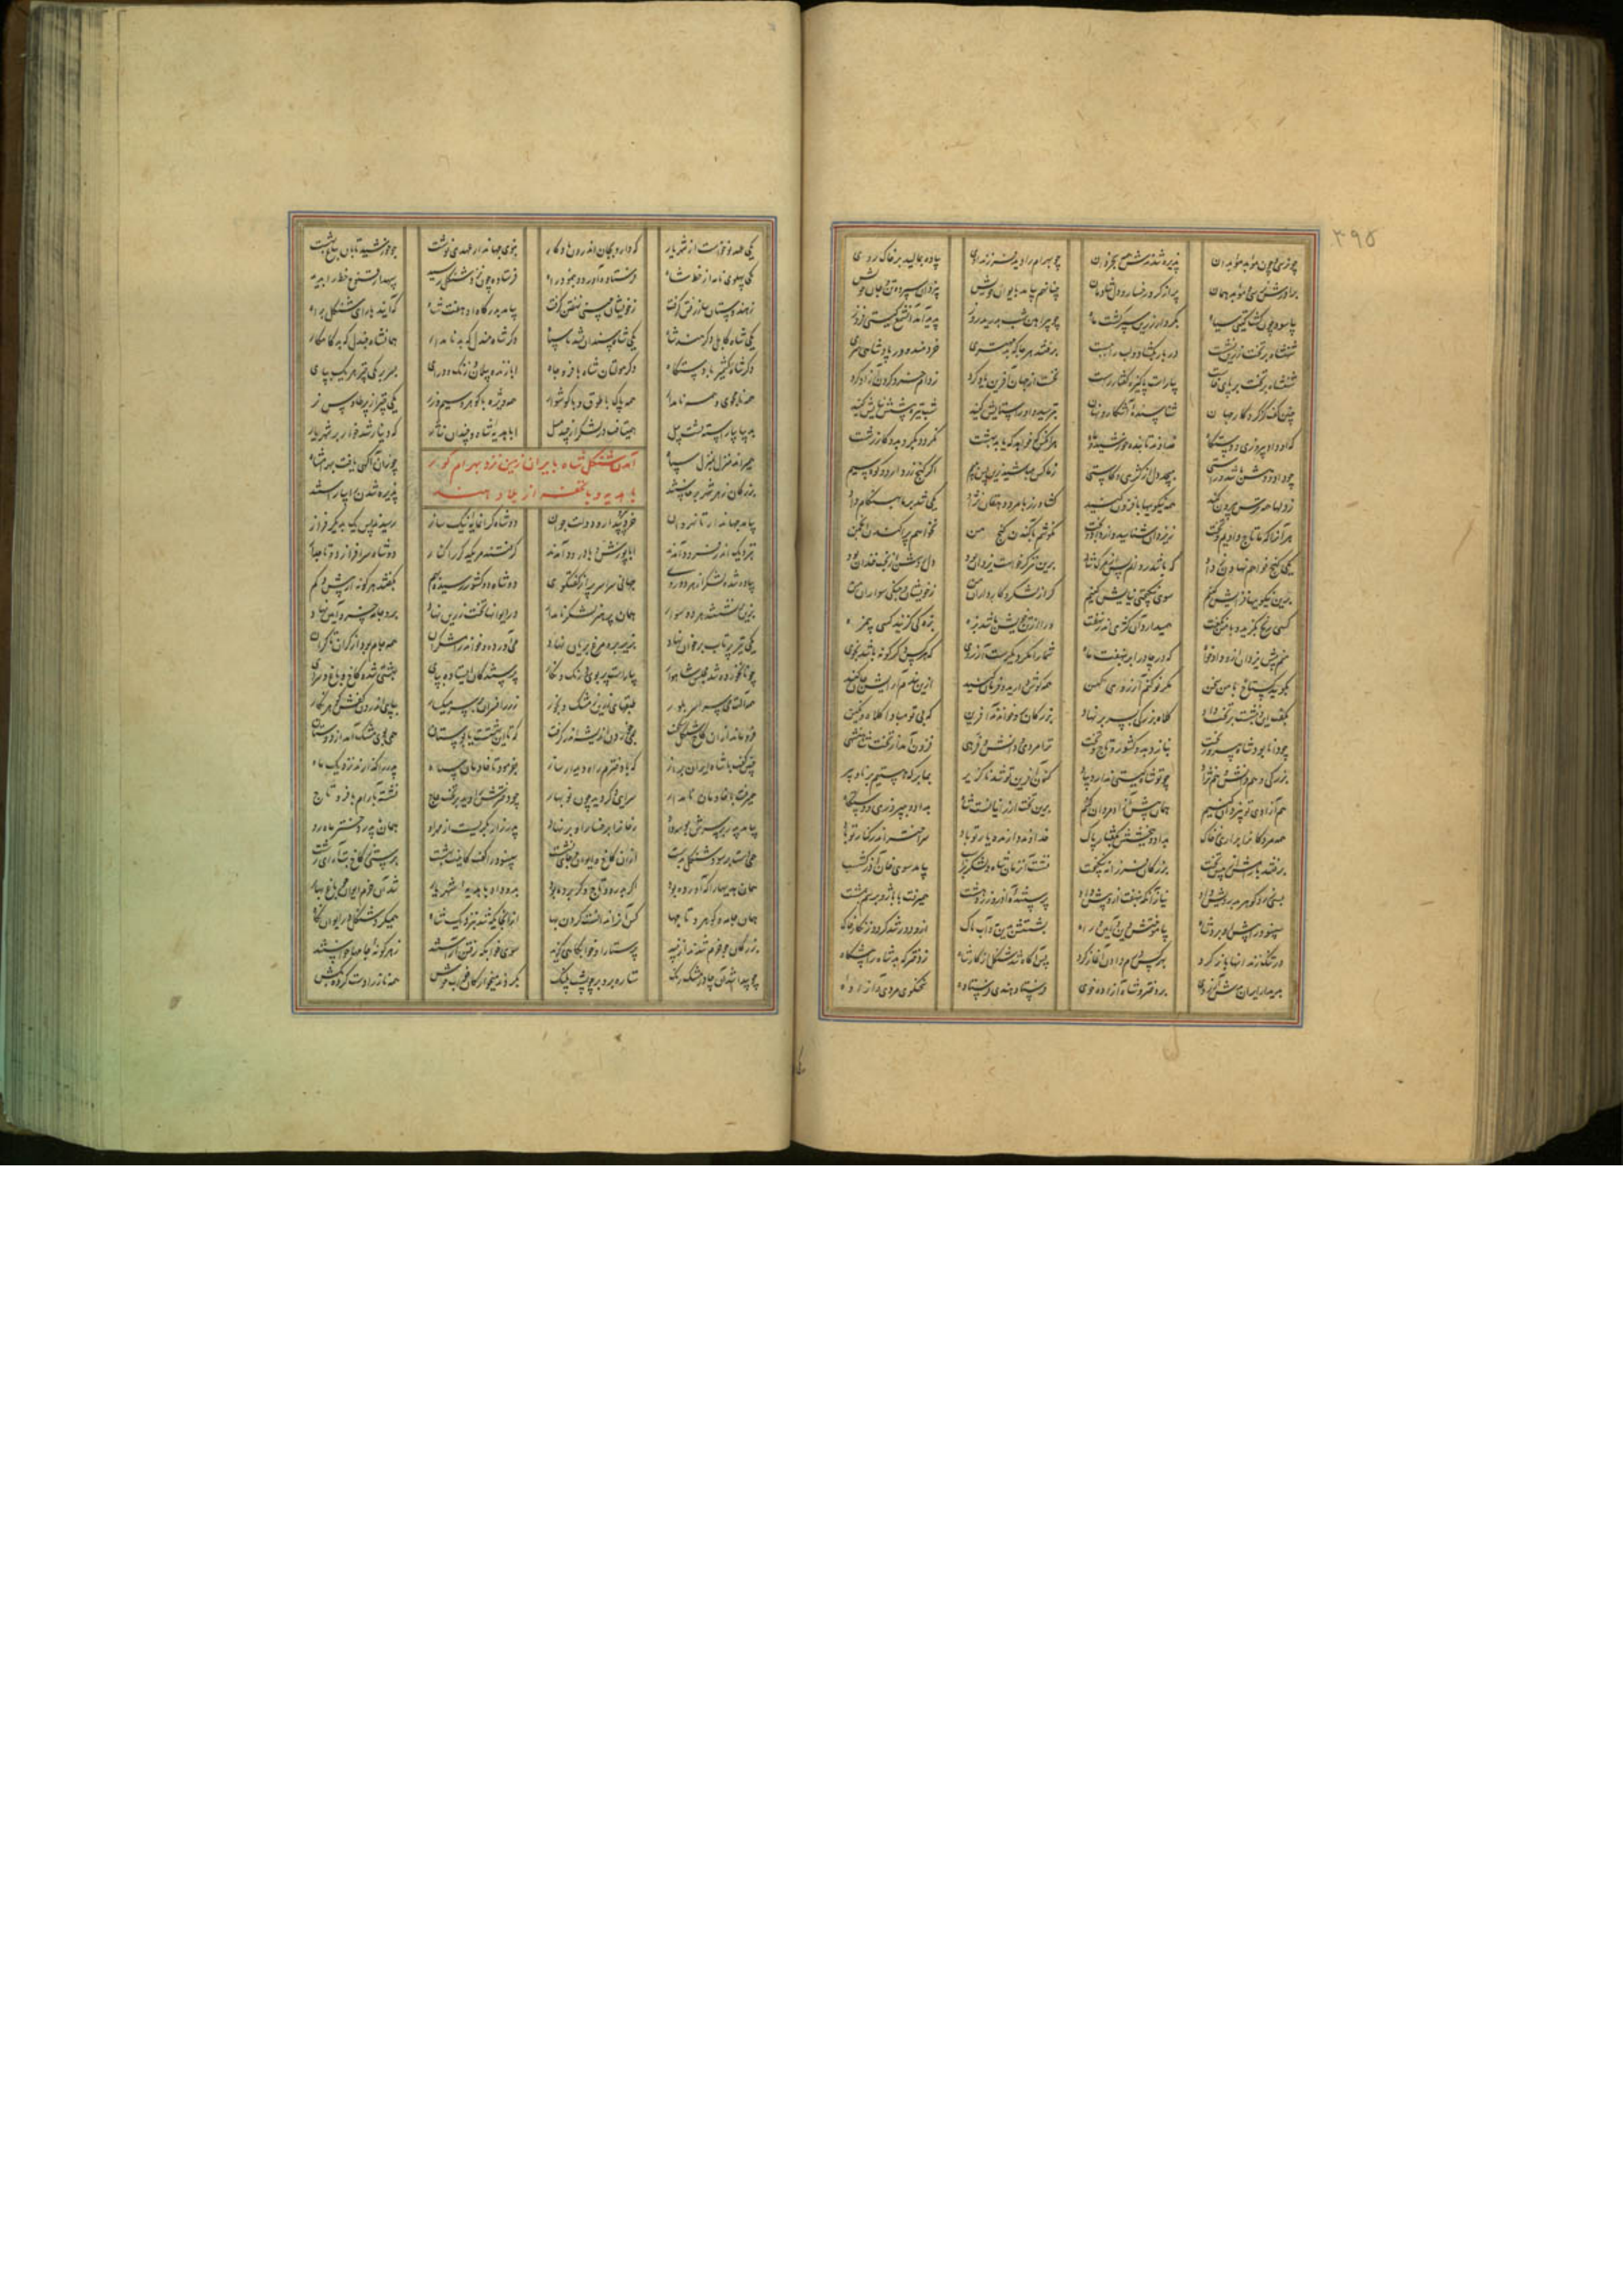 ۳۹۵
چو نرسی و چون موبد موبدان پذیره شدندش همه بخردان چو بهرام را دید فرزند اوی پیاده بمالید بر خاک روی
برادرش نرسی و موبد همان پر از گرد رخسار و دل شادمان چنان هم بیامد بایوان خویش بیزدان سپرده تن و جان خویش
بیاسود چون گشت گیتی سیاه بکردار زرین سپر گشت ماه چو پیراهن شب بدرید روز پدید آمد آن شمع گیتی فروز
شهنشاه بر تخت زرین نشست در بار بگشاد و لب را ببست برفتند هر جا که بد مهتری خردمند و در پادشاهی سری
شهنشاه بر تخت بر پای خاست بیاراست پاکیزه گفتار راست نخست از جهان آفرین یاد کرد ز دام خرد گردن آزاد کرد
چنین گفت کز کردگار جهان شناسنده آشکار و نهان بترسید و او را ستایش کنید شب تیره پیشش نیایش کنید
که او داد پیروزی و دستگاه خداوند تابنده خورشید و ماه هر آنکس که خواهد که یابد بهشت نگردد بگرد بد و کار زشت
چو داد و دهش باشد و راستی بپیچد دل از کژی و کاستی ز ما کس مباشید زین پس ببیم اگر گنج زر دارد و کوه سیم
ز دلها همه ترس بیرون کنید همه نیکویها بافزون کنید کشاورز با مرد دهقان نژاد یکی شد بر ما بهنگام داد
هر آنرا که ما تاج دادیم و تخت ز یزدان شناسید وز داد و بخت نکوشم بآگندن گنج من نخواهم پراکندن انجمن
یکی گنج خواهم نهادن ز داد که باشد روانم پس از مرگ شاد برین نیز گر خواست یزدان بود دل روشن از بخت خندان بود
برین نیکویها فزایش کنیم سوی نیکبختی نیایش کنیم گر از لشکر و کارداران من ز خویشان و جنگی سواران من
کسی رنج بگزید و با من نگفت همی دارد آن کژی اندر نهفت ورا از تن خویش باشد بزه بزه کی گزیند کسی بی مزه
منم پیش یزدان ازو دادخواه که در چادر ابر بنهفت ماه شما را مگر دیگرست آرزوی که هر کس دگرگونه باشد بخوی
بگویید گستاخ با من سخن مگر نو کنم آرزوهای کهن همه گوش دارید و فرمان کنید
بگفت این و بنشست بر تخت داد کلاه بزرگی بسر بر نهاد بزرگان برو خواندند آفرین که بی تو مبادا کلاه و نگین
چو دانا بود شاه پیروز بخت بنازد بدو کشور و تاج و تخت ترا مردی و دانش و فرهی فزون آمد از تخت شاهنشهی
بزرگی و هم دانش و هم نژاد چو تو شاه گیتی ندارد بیاد کنون آفرین تو شد ناگزیر بما بر که هستیم برنا و پیر
هم آزادی تو بیزدان کنیم همان پیش آزادمردان کنیم برین تخت ارزانیانست شاه بداد و بپیروزی و دستگاه
همه مردگان را برآری ز خاک بداد و ببخشش بگفتار پاک خداوند دارنده یار تو باد سر اختر اندر کنار تو باد
برفتند با رامش از پیش تخت بزرگان فرزانه نیکبخت نشست آن زمان شاه و لشکر بر اسپ بیامد سوی خان آذرگشسپ
بسی زر و گوهر بدرویش داد نیاز آنکه بنهفت ازو بیش داد پرستنده آذر زردهشت همی رفت با باژ و برسم بمشت
سپینود را پیش او برد شاه بیاموختش دین و آیین و راه بشستش بدین و بآب پاک ازو دور شد گرد و زنگار و خاک
در تنگ زندانها باز کرد بهر کس درم دادن آغاز کرد پس آگاه شد شنگل از کار شاه ز دختر که بد شاه را پیشگاه
بدیدار ایران بدش آرزوی بر دختر و شاه آزاده خوی فرستاد هندی فرستاده سخنگوی و مردی و آزاده
یکی عهد نو خواست از شهریار که دارد بخان اندرون یادگار بنوی جهاندار عهدی نوشت چو خورشید تابان بباغ بهشت
یکی پهلوی نامه از خط شاه فرستاده آورد و بنمود راه فرستاده چون نزد شنگل رسید سپهدار قنوج خط را بدید
ز هندوستان ساز رفتن گرفت ز خویشان چینی نهفتن گرفت بیامد بدرگاه او هفت شاه که آیند با رای شنگل براه
یکی شاه کابل دگر هند شاه یکی شاه سندان بشد با سپاه دگر شاه مندل که بد نامدار همان شاه جندل که بد کامکار
دگر شاه کشمیر با دستگاه دگر مولتان شاه با فر و جاه ابا ژنده پیلان و زنگ و درای بسر بر یکی چتر هر یک بپای
همه نامجوی و همه نامدار همه پاک با طوق و با گوشوار همه ویژه با گوهر و سیم و زر یکی چتر از پر طاوس نر
بدیبا بیاراسته پشت پیل همی تافت لشکر از چند میل ابا هدیه شاه و چندان نثار که دینار شد خوار بر شهریار
آمدن شنگل شاه بایران زمین نزد بهرام گور
با هدیه و با تحفه از بلاد هند
همی راند منزل بمنزل سپاه چو زان آگهی یافت بهرام شاه
بزرگان ز هر شهر برخاستند پذیره شدن را بیاراستند
بیامد جهاندار تا نهروان خرد پیر و بیدار و دولت جوان دو شاه گرانمایه نیک ساز رسیدند پس یک بدیگر فراز
بنزدیک اندر فرود آمدند ابا پوزش و با درود آمدند گرفتند مر یکدگر را کنار دو شاه سرافراز و با تاجدار
پیاده شده لشکر از هر دو روی جهانی سراسر پر از گفتگوی دو شاه و دو کشور رسیده بهم بگفتند هر گونه از بیش و کم
بزین بر نشستند هر دو سوار همان پرهنر لشکر نامدار در ایوانها تخت زرین نهاد برو جامه خسرو آیین نهاد
یکی تیر پرتاب بر خوان نهاد بزیر بره مرغ بریان نهاد می آورد و خواند رامشگران همه جام بود از کران تا کران
چو نان خورده شد مجلس شاهوار بیاراست پر بوی و رنگ و نگار پرستندگان ایستاده بپای بهشتی شده کاخ و باغ و سرای
همه آلت می سراسر بلور طبقهای زرین ز مشک و بخور ز زر افسری بر سر میگسار بپای اندرون کفش گوهرنگار
فرو ماند زان کاخ شنگل شگفت بمی خوردن اندیشه اندر گرفت که تا این بهشتست یا بوستان همی بوی مشک آید از دوستان
چنین گفت با شاه ایران براز که با دخترم راه دیدار ساز بفرمود تا خادمان سپاه پدر را گذارند نزدیک ماه
همی رفت با خادمان نامدار سرای دگر دید چون نوبهار چو دخترش را دید بر تخت عاج نشسته بآرام با فر و تاج
بیامد پدر بر سرش بوسه داد رخانرا برخسار او بر نهاد پدر زار بگریست از مهر او همان بر پدر دختر ماه رو
همی دست بر سود شنگل بدست ازان کاخ و ایوان و جای نشست سپینود را گفت کاینت بهشت برستی ز کاخ بت آرای زشت
همان هدیها را که آورده بود اگر بدره و تاج و گر برده بود بدو داد با هدیه شهریار شد آن خرم ایوان چو باغ بهار
همان جامه و گوهر و تاجها کس آنرا ندانست کردن بها از آنجایگه شد بنزدیک شاه همیکرد شنگل بایوان نگاه
بزرگان چو خرم شدند از نبید پرستار او خوابگاهی گزید سوی خوابگه رفتن آراستند ز هر گونه جامها خواستند
چو پیدا شد آن چادر مشک رنگ ستاره برو بر چو پشت پلنگ بکردند میخوارگان خواب خوش همه ناز را دست کرده بکش